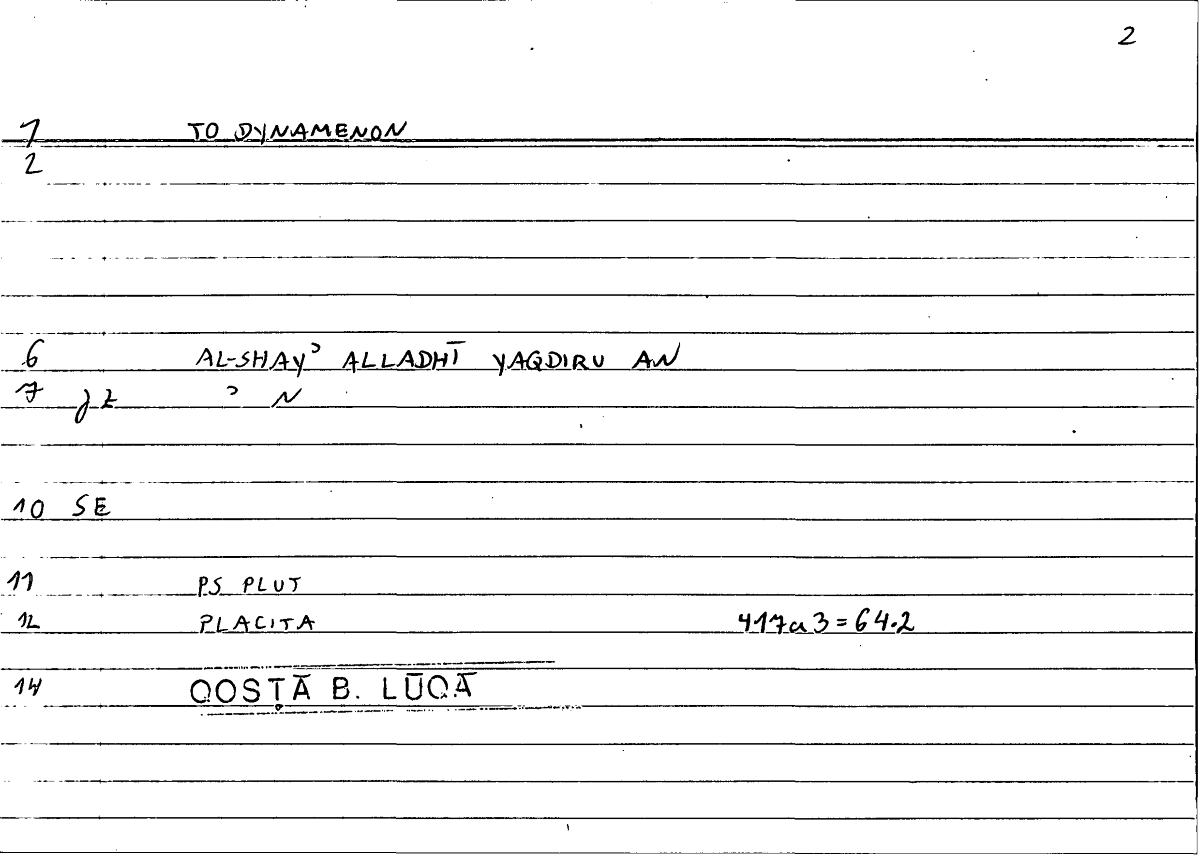 2
1 TO DYNAMENON
2
6 AL-SHAYʾ ALLADHĪ YAQDIRU AN
7 jz ʾ N
10 SE
11 PS PLUT
12 PLACITA 417a3=64.2
14 QOSṬĀ B. LŪQĀ